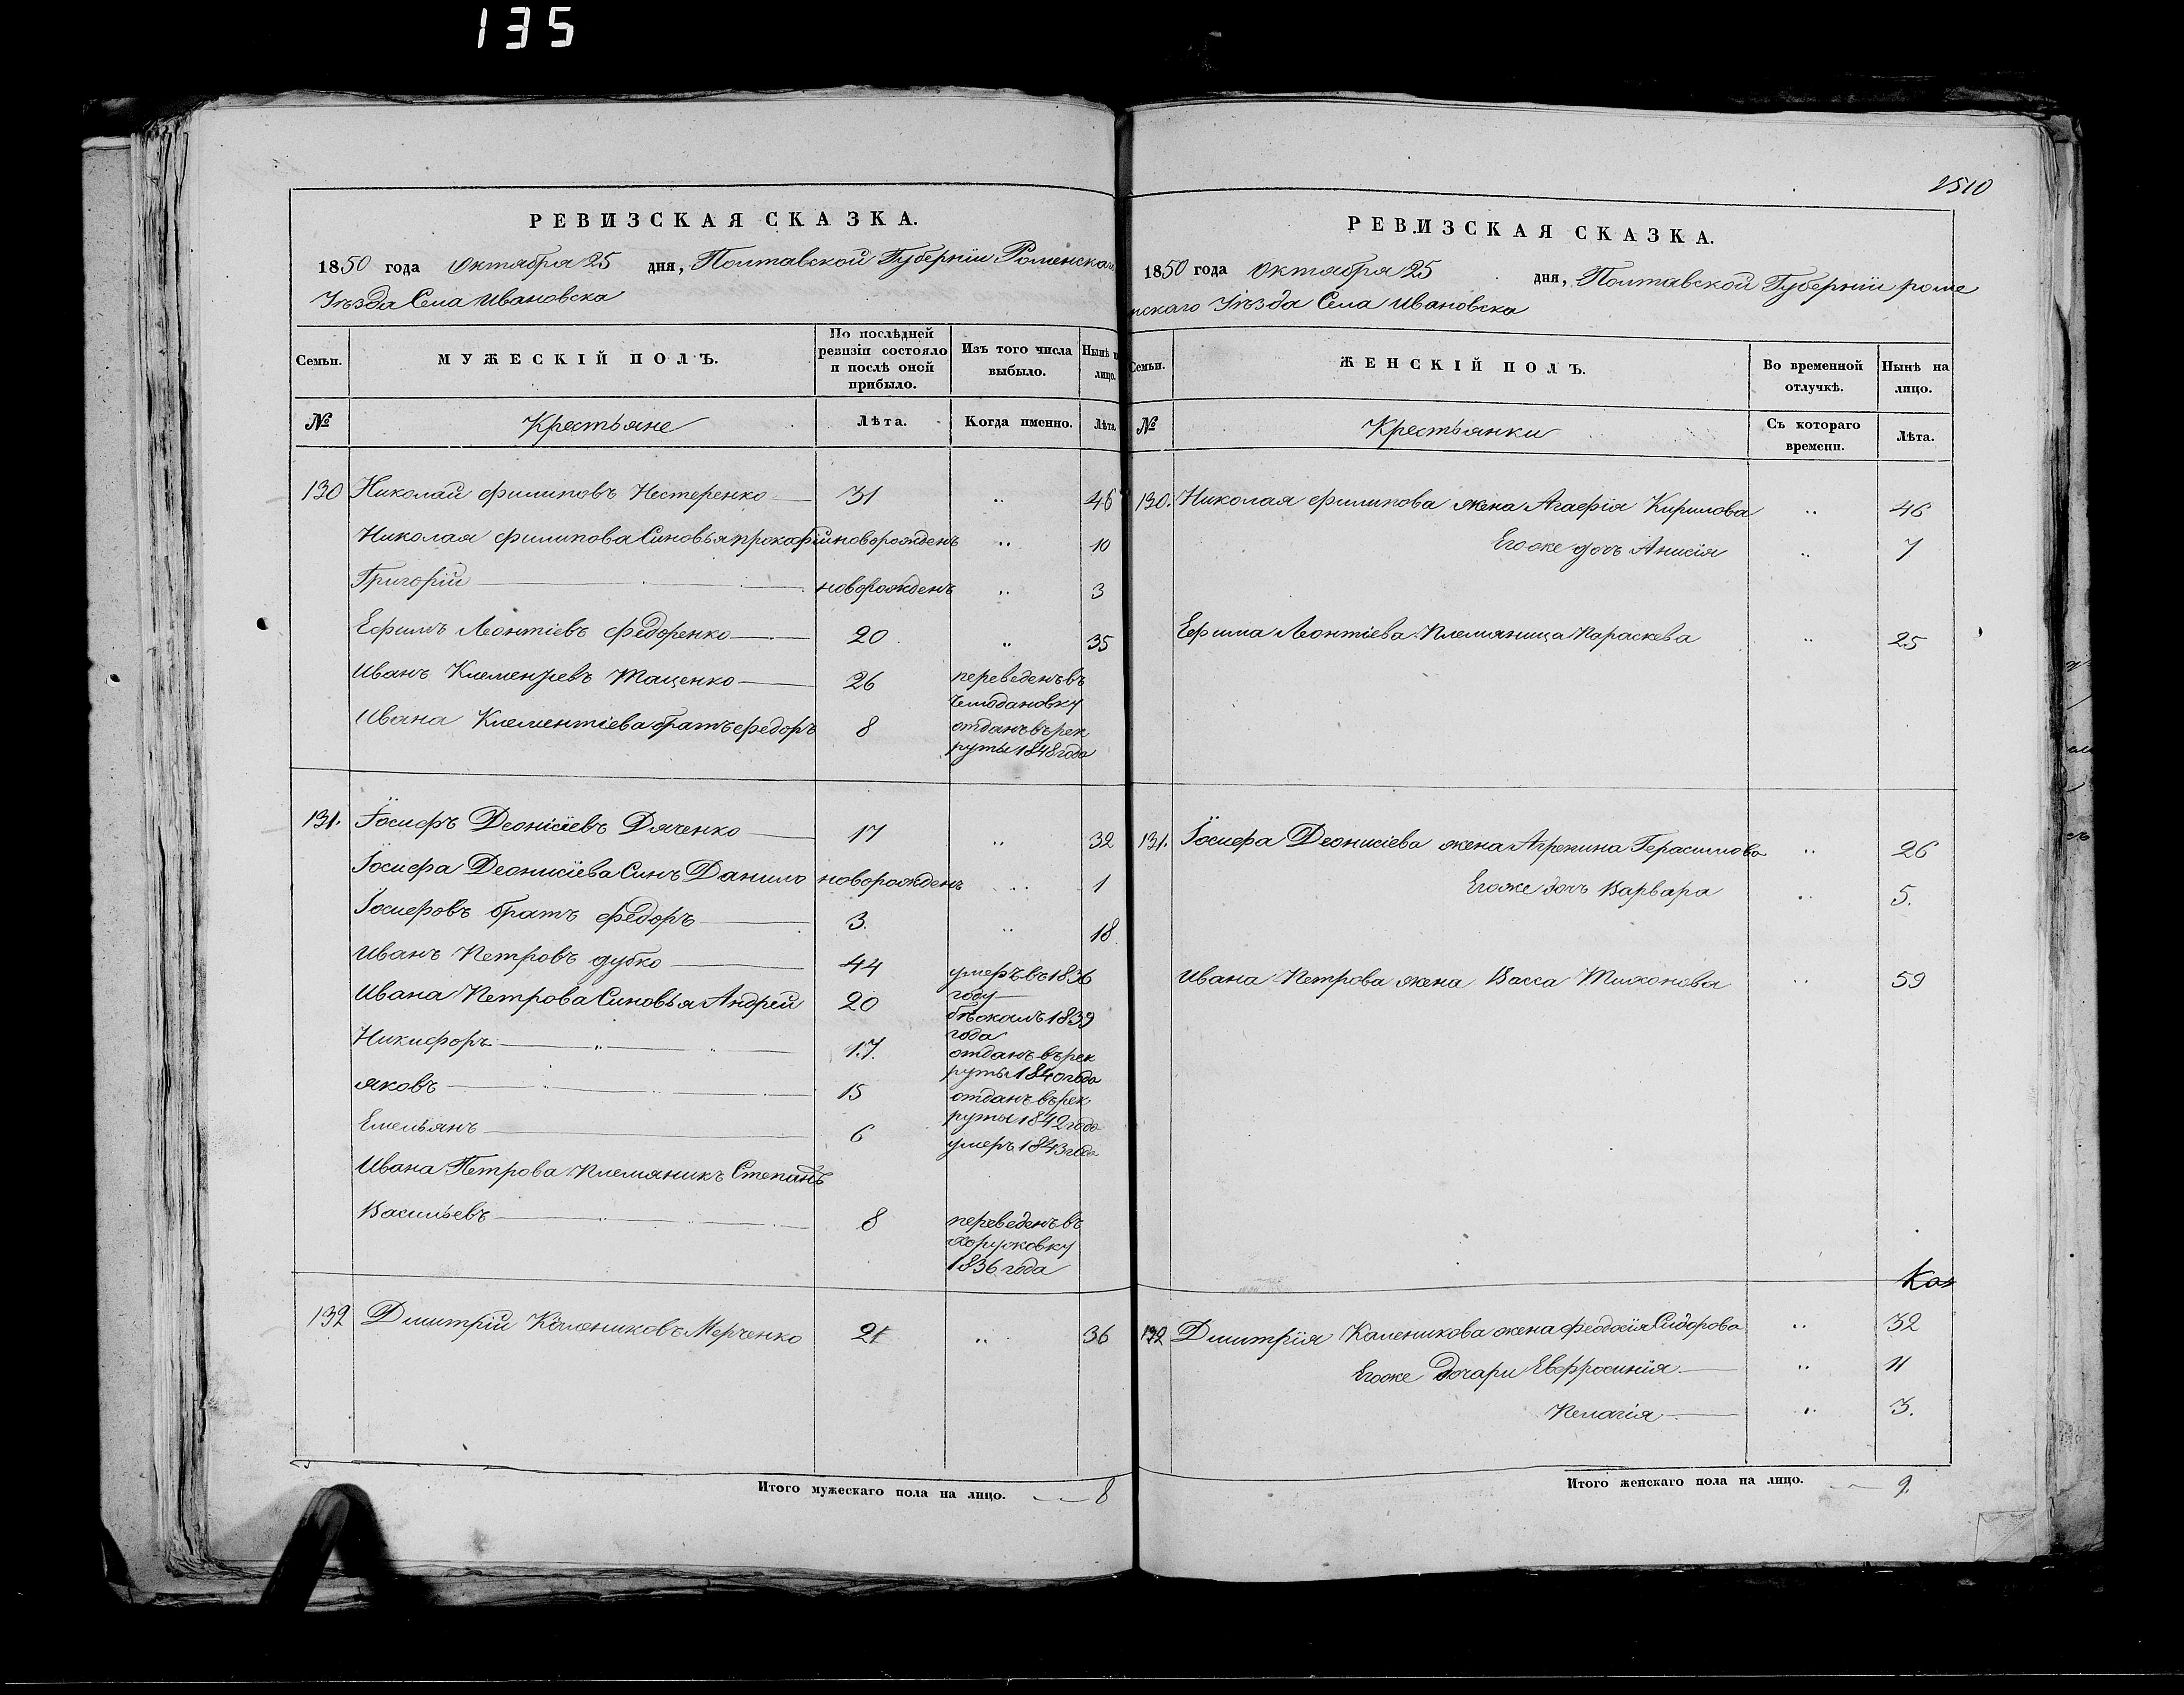 135
РЕВИЗСКАЯ СКАЗКА.
1850 года Октября 25 дня, Полтавской Губерніи Роменскаго
Уѣзда Села Ивановска
Семьи. МУЖЕСКІЙ ПОЛЪ. По послѣдней ревизіи состояло и послѣ оной прибыло. Изъ того числа выбыло. Нынѣ на лицо.
№ Крестьяне Лѣта. Когда именно. Лѣта
130 Николай Филиповъ Нестеренко 31 „ 46
Николая Филипова Синовья Прокофій новорожденъ „ 10
Григорій новорожденъ „ 3
Ефимъ Леонтіевъ Федоренко 20 „ 35
Иванъ Клементіевъ Маценко 26 переведенъ въ
Чемодановку
Ивана Клементіева братъ Федоръ 8 отданъ въ рек
руты 1848 года
131. Іосифъ Деонисіевъ Дяченко 17 „ 32
Іосифа Деонисіева Синъ Данило новорожденъ „ 1
Іосифовъ братъ Федоръ 3. „ 18
Иванъ Петровъ Дубко 44 умеръ въ 1836
году
Ивана Петрова Синовья Андрей 20 бѣжалъ 1839
года
Никифоръ „ „ 17. отданъ въ рек
руты 1840 года
Яковъ 15 отданъ въ рек
руты 1842 года
Емельянъ 6 умеръ 1843 года
Ивана Петрова Племяникъ Степанъ
Васильевъ 8 переведенъ въ
Хоружовку
1836 года
132 Дмитрій Калениковъ Мерченко 21 „ 36
Итого мужескаго пола на лицо. 8
2510
РЕВИЗСКАЯ СКАЗКА.
1850 года Октября 25 дня, Полтавской Губерніи роме
нскаго Уѣзда Села Ивановска
Семьи. ЖЕНСКІЙ ПОЛЪ. Во временной отлучкѣ. Нынѣ на лицо.
№ Крестьянки Съ котораго времени. Лѣта.
130. Николая Филипова жена Агафія Кирилова „ 46
Егоже дочъ Анисія „ 7
Ефима Леонтіева Племяница Параскева „ 25
131. Іосифа Деонисіева жена Агрепина Герасимова „ 26
Егоже дочъ Варвара „ 5.
Ивана Петрова жена Васса Тихонова „ 59
132 Дмитрія Каленикова жена Феодосія Сидорова „ 32
Егоже дочари Евфросинія „ 11
Пелагія „ 3.
Итого женскаго пола на лицо. 9.